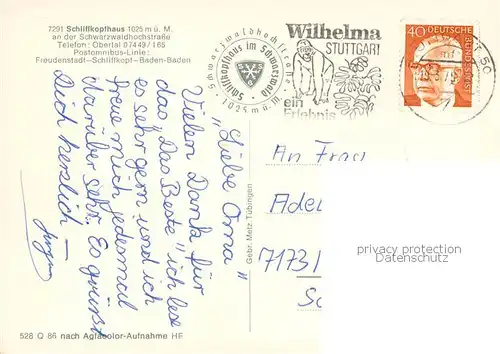 7291 Schliffkopfhaus 1025 m ü. M.
an der Schwarzwaldhochstraße
Telefon: Obertal 07449/165
Postomnibus-Linie:
Freudenstadt–Schliffkopf–Baden-Baden
Schwarzwaldhochstraße
Schliffkopfhaus im Schwarzwald
1025 m ü. M.
Wilhelma
STUTTGART
ein
Erlebnis
40
DEUTSCHE BUNDESPOST
50
"Liebe Oma"
Vielen Dank für
das "Das Beste" ich lese
es sehr gern und ich
freue mich jedesmal
darüber sehr. Es grüsst
Dich herzlich –
Jürgen
An Frau
7173
Gebr. Metz Tübingen
privacy protection
Datenschutz
528 Q 86 nach Agfacolor-Aufnahme HF